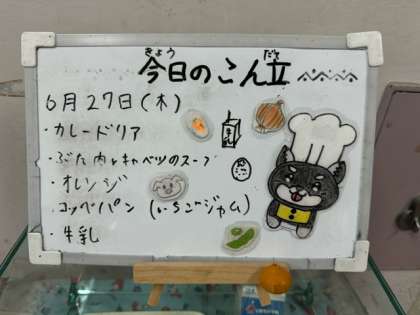 きょう だて
今日のこん立
6月27日(木)
・カレードリア
・ぶた肉とキャベツのスープ
・オレンジ
・コッペパン (いちごジャム)
・牛乳